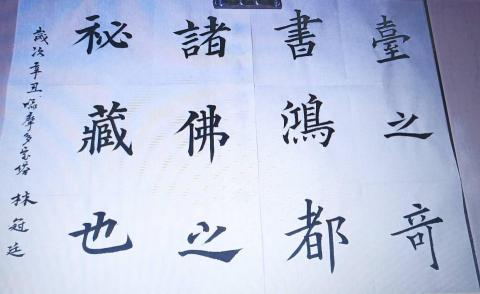 臺之奇
書鴻都
諸佛之
秘藏也
歲次辛丑臨摩多寶塔 林冠廷